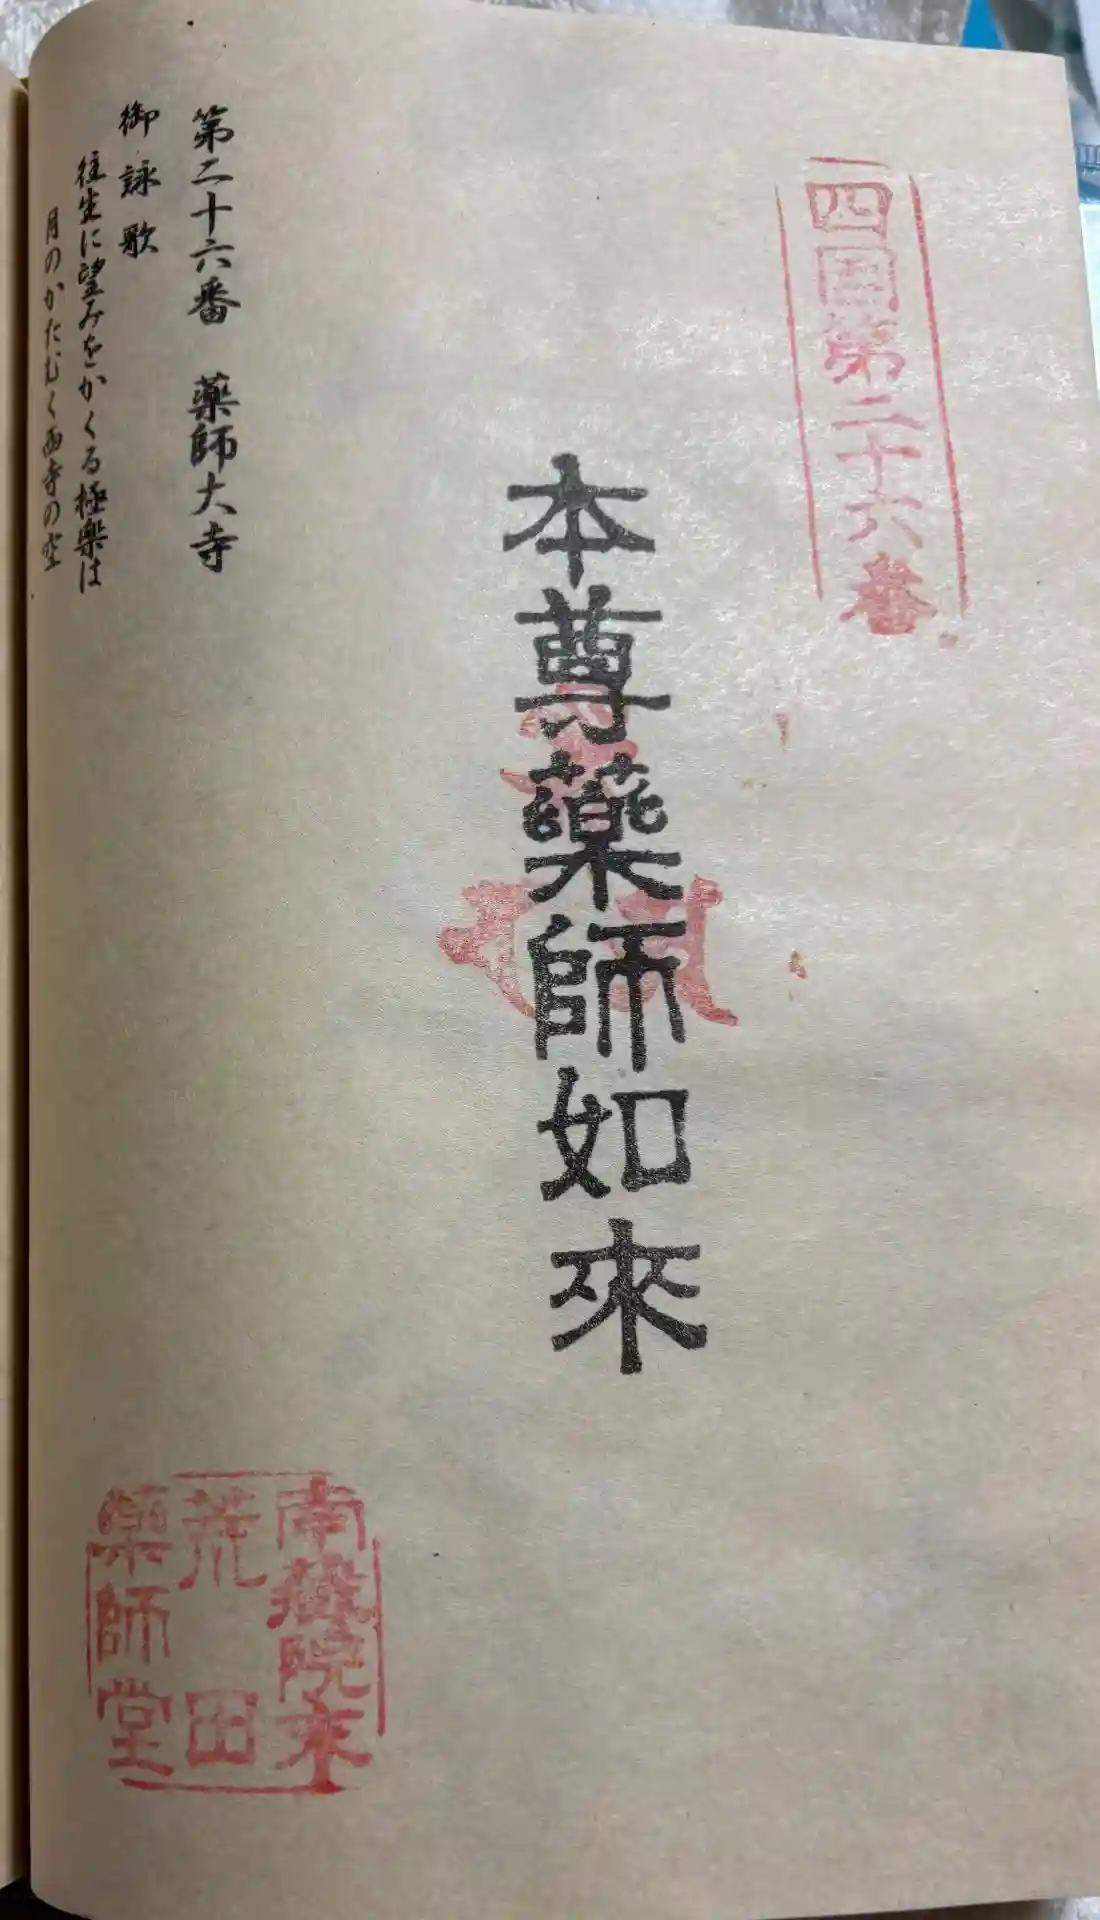 四国第二十六番
本尊藥師如來
第二十六番　薬師大寺
御詠歌
往生に望みをかくる極楽は
月のかたむく西寺の空
南蔵院末
荒田
薬師堂